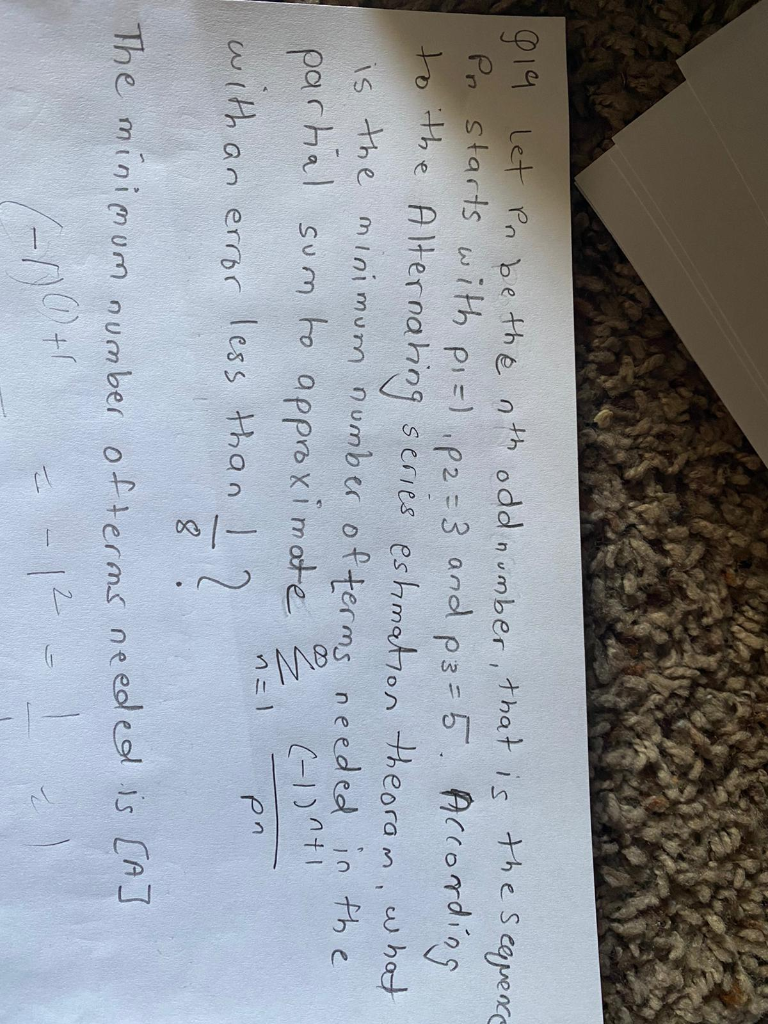 Q19 Let Pn be the nth odd number, that is the sequence
Pn starts with p1=1, p2=3 and p3=5. According
to the Alternating series estimation theoram, what
is the minimum number of terms needed in the
partial sum to approximate ∞ Σ n=1 (-1)^n+1 / pn
with an error less than 1/8?
The minimum number of terms needed is [A]
(-1)^(1)+1 = -1^2 = 1 = 1